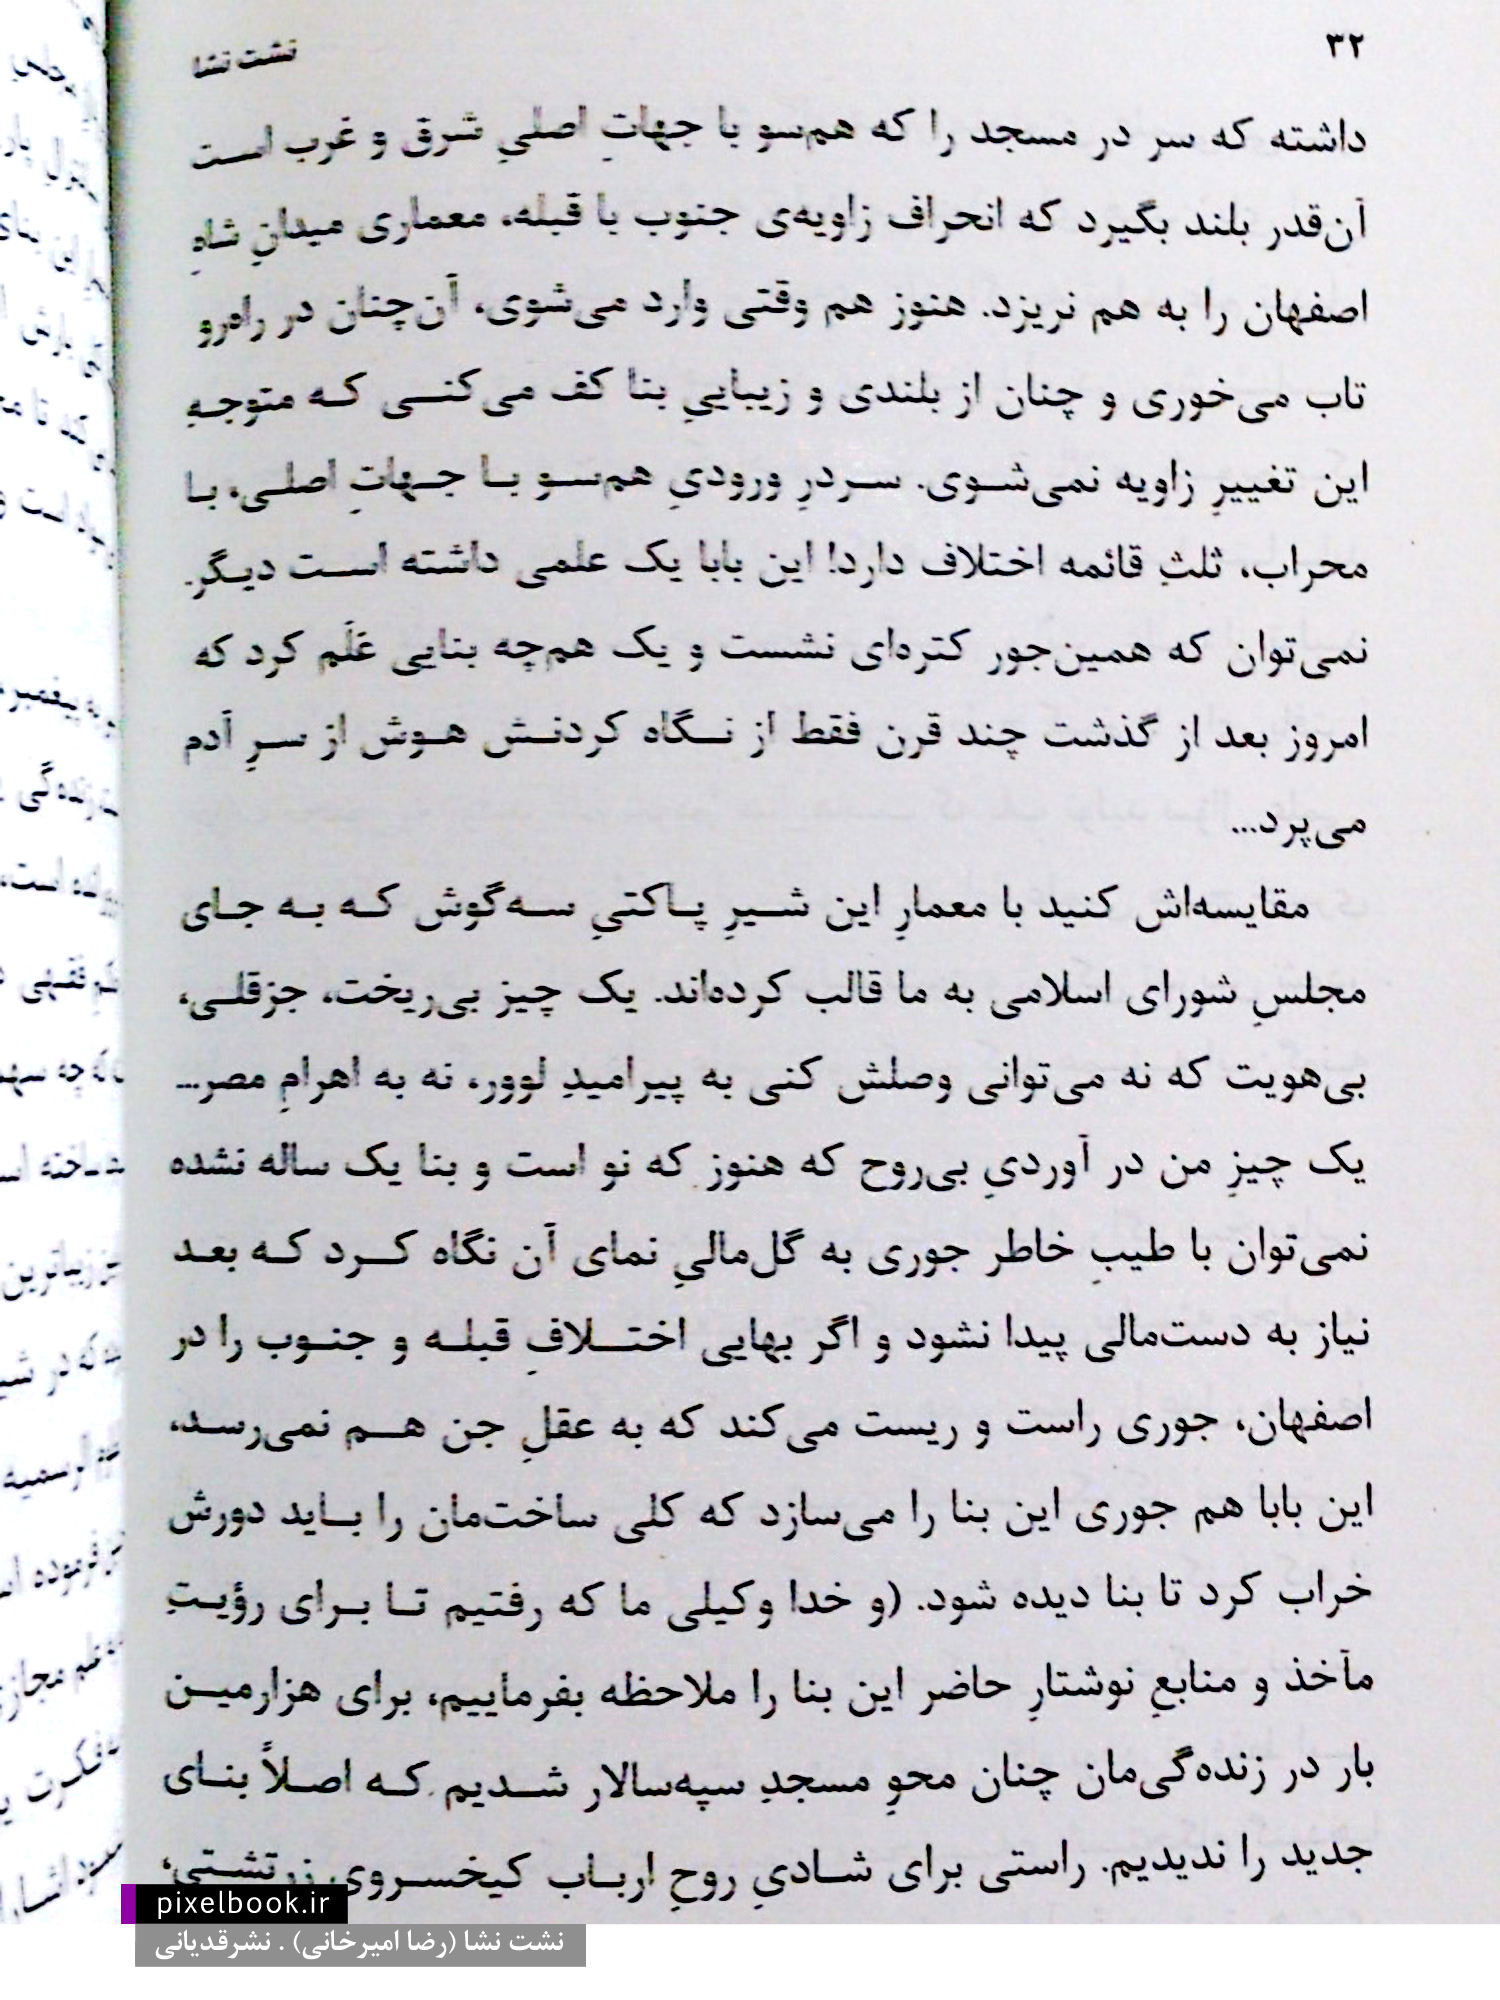 ۳۲
نشت نشا
داشته که سر در مسجد را که هم‌سو با جهاتِ اصلیِ شرق و غرب است
آن‌قدر بلند بگیرد که انحراف زاویه‌ی جنوب با قبله، معماری میدانِ شاهِ
اصفهان را به هم نریزد. هنوز هم وقتی وارد می‌شوی، آن‌چنان در راه‌رو
تاب می‌خوری و چنان از بلندی و زیباییِ بنا کف می‌کنی که متوجهِ
این تغییرِ زاویه نمی‌شوی. سردرِ ورودیِ هم‌سو با جهاتِ اصلی، با
محراب، ثلثِ قائمه اختلاف دارد! این بابا یک علمی داشته است دیگر.
نمی‌توان که همین‌جور کتره‌ای نشست و یک هم‌چه بنایی عَلَم کرد که
امروز بعد از گذشت چند قرن فقط از نگاه کردنش هوش از سرِ آدم
می‌پرد...
مقایسه‌اش کنید با معمارِ این شیرِ پاکتیِ سه‌گوش که به جای
مجلسِ شورای اسلامی به ما قالب کرده‌اند. یک چیز بی‌ریخت، جزقلی،
بی‌هویت که نه می‌توانی وصلش کنی به پیرامیدِ لوور، نه به اهرامِ مصر...
یک چیزِ من در آوردیِ بی‌روح که هنوز که نو است و بنا یک ساله نشده
نمی‌توان با طیبِ خاطر جوری به گل‌مالیِ نمای آن نگاه کرد که بعد
نیاز به دست‌مالی پیدا نشود و اگر بهایی اختلافِ قبله و جنوب را در
اصفهان، جوری راست و ریست می‌کند که به عقلِ جن هم نمی‌رسد،
این بابا هم جوری این بنا را می‌سازد که کلی ساخت‌مان را باید دورش
خراب کرد تا بنا دیده شود. (و خدا وکیلی ما که رفتیم تا برای رؤیتِ
مآخذ و منابعِ نوشتارِ حاضر این بنا را ملاحظه بفرماییم، برای هزارمین
بار در زنده‌گی‌مان چنان محوِ مسجدِ سپه‌سالار شدیم که اصلاً بنای
جدید را ندیدیم. راستی برای شادیِ روحِ ارباب کیخسروی زرتشتی،
pixelbook.ir
نشت نشا (رضا امیرخانی) . نشرقدیانی